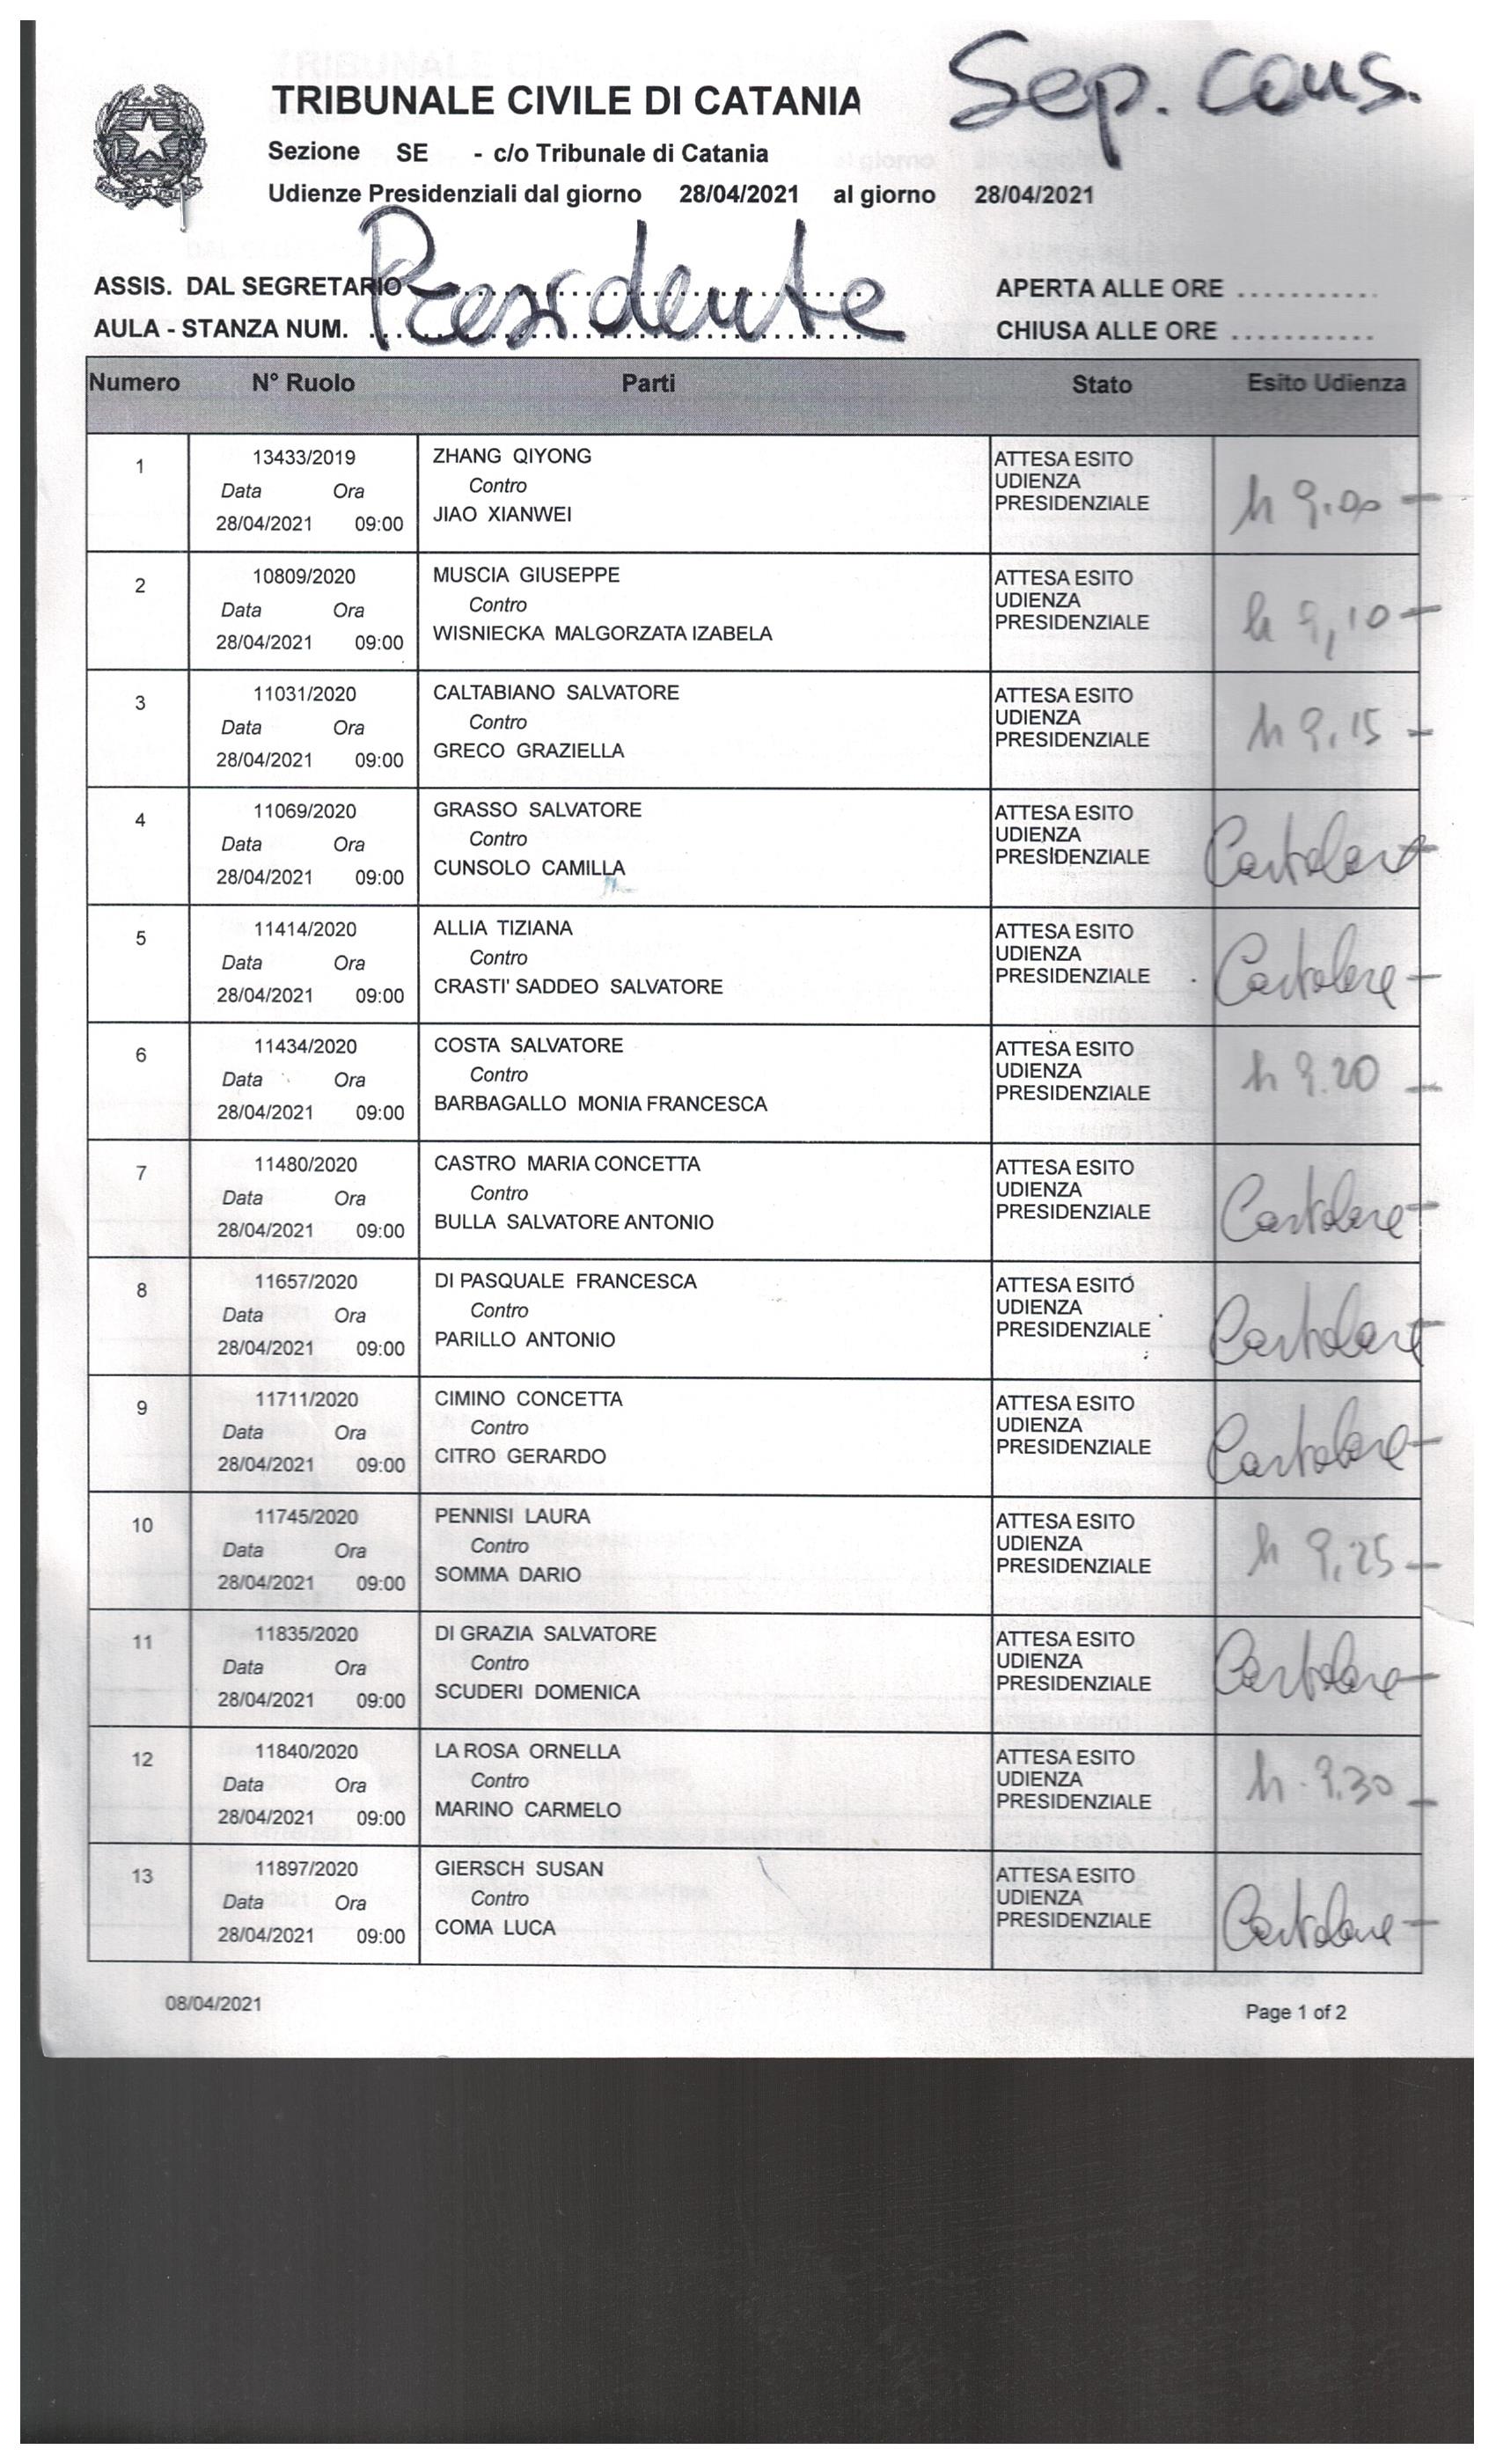 Sep. cons.
TRIBUNALE CIVILE DI CATANIA
Sezione SE - c/o Tribunale di Catania
Udienze Presidenziali dal giorno 28/04/2021 al giorno 28/04/2021
Presidente
ASSIS. DAL SEGRETARIO .............................. APERTA ALLE ORE ...........
AULA - STANZA NUM. .............................. CHIUSA ALLE ORE ...........
Numero N° Ruolo Parti Stato Esito Udienza
1 13433/2019 ZHANG QIYONG ATTESA ESITO
Data Ora Contro UDIENZA
28/04/2021 09:00 JIAO XIANWEI PRESIDENZIALE h 9,00 -
2 10809/2020 MUSCIA GIUSEPPE ATTESA ESITO
Data Ora Contro UDIENZA
28/04/2021 09:00 WISNIECKA MALGORZATA IZABELA PRESIDENZIALE h 9,10 -
3 11031/2020 CALTABIANO SALVATORE ATTESA ESITO
Data Ora Contro UDIENZA
28/04/2021 09:00 GRECO GRAZIELLA PRESIDENZIALE h 9,15 -
4 11069/2020 GRASSO SALVATORE ATTESA ESITO
Data Ora Contro UDIENZA
28/04/2021 09:00 CUNSOLO CAMILLA PRESIDENZIALE Cartolare
5 11414/2020 ALLIA TIZIANA ATTESA ESITO
Data Ora Contro UDIENZA
28/04/2021 09:00 CRASTI' SADDEO SALVATORE PRESIDENZIALE Cartolare -
6 11434/2020 COSTA SALVATORE ATTESA ESITO
Data Ora Contro UDIENZA
28/04/2021 09:00 BARBAGALLO MONIA FRANCESCA PRESIDENZIALE h 9.20 -
7 11480/2020 CASTRO MARIA CONCETTA ATTESA ESITO
Data Ora Contro UDIENZA
28/04/2021 09:00 BULLA SALVATORE ANTONIO PRESIDENZIALE Cartolare -
8 11657/2020 DI PASQUALE FRANCESCA ATTESA ESITO
Data Ora Contro UDIENZA
28/04/2021 09:00 PARILLO ANTONIO PRESIDENZIALE Cartolare -
9 11711/2020 CIMINO CONCETTA ATTESA ESITO
Data Ora Contro UDIENZA
28/04/2021 09:00 CITRO GERARDO PRESIDENZIALE Cartolare -
10 11745/2020 PENNISI LAURA ATTESA ESITO
Data Ora Contro UDIENZA
28/04/2021 09:00 SOMMA DARIO PRESIDENZIALE h 9,25 -
11 11835/2020 DI GRAZIA SALVATORE ATTESA ESITO
Data Ora Contro UDIENZA
28/04/2021 09:00 SCUDERI DOMENICA PRESIDENZIALE Cartolare -
12 11840/2020 LA ROSA ORNELLA ATTESA ESITO
Data Ora Contro UDIENZA
28/04/2021 09:00 MARINO CARMELO PRESIDENZIALE h. 9.30 -
13 11897/2020 GIERSCH SUSAN ATTESA ESITO
Data Ora Contro UDIENZA
28/04/2021 09:00 COMA LUCA PRESIDENZIALE Cartolare -
08/04/2021 Page 1 of 2